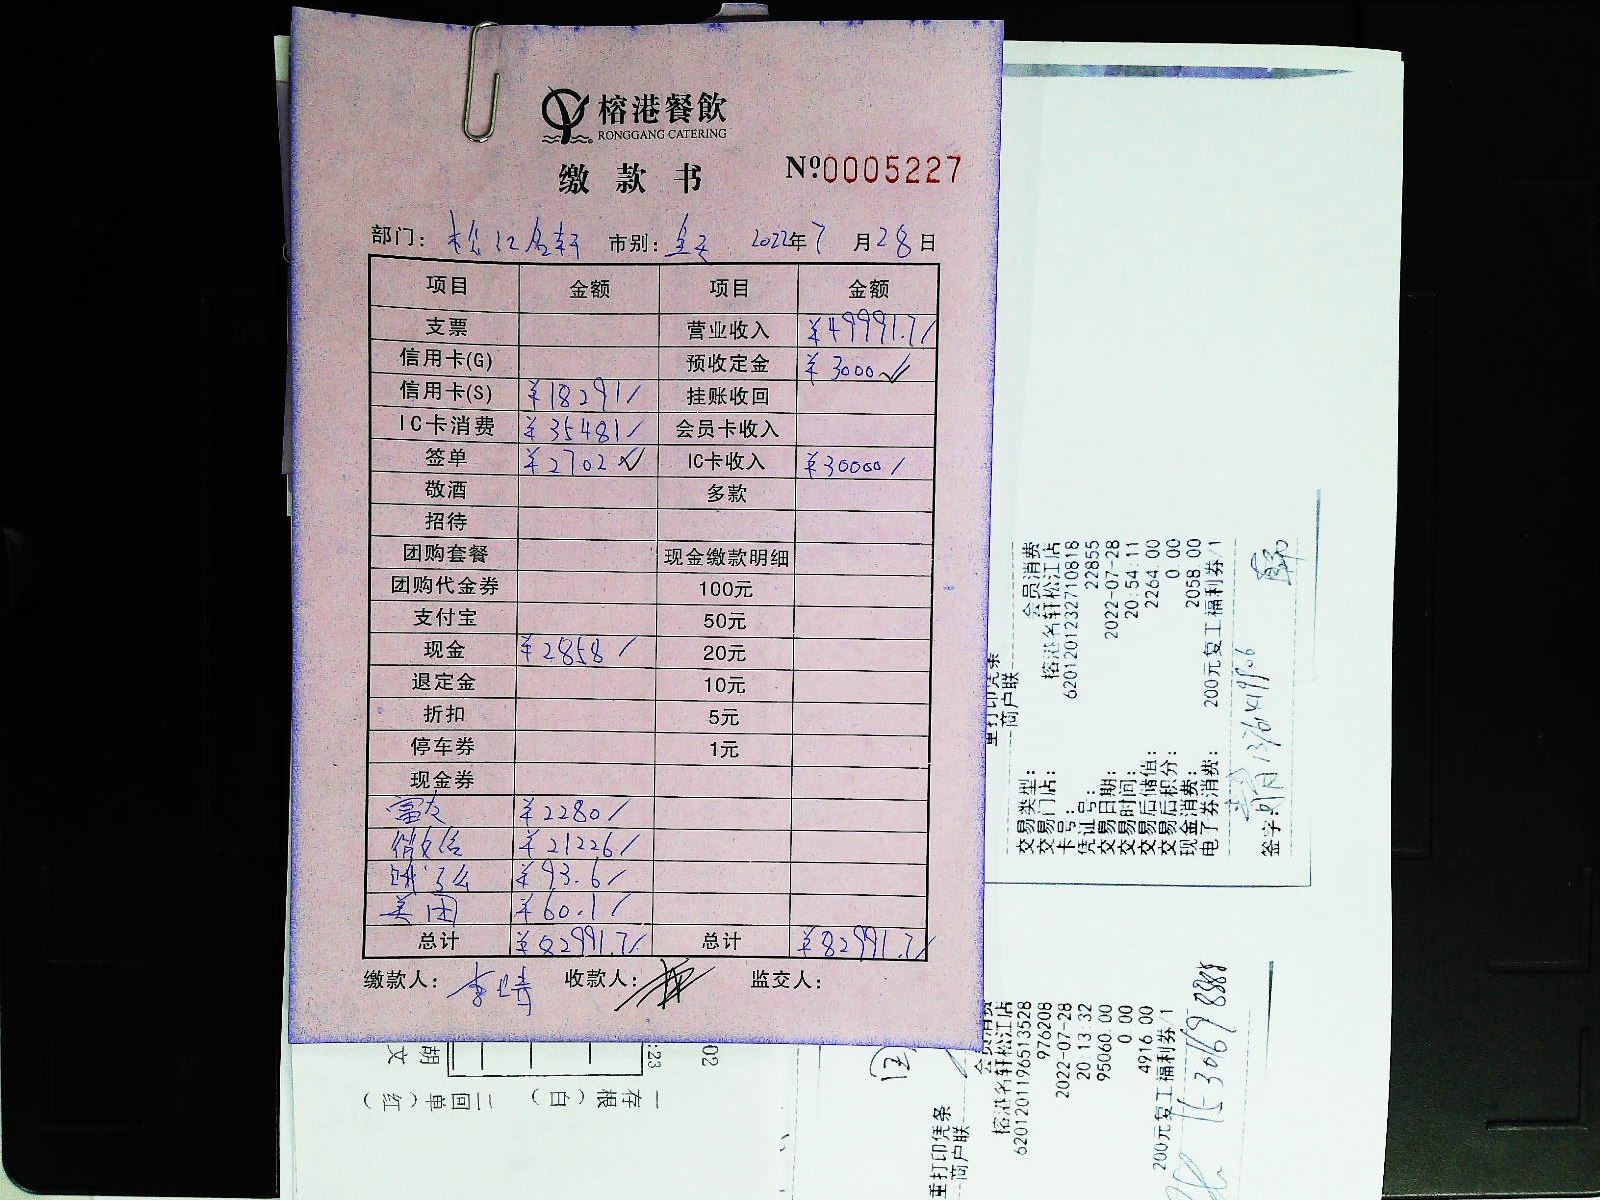 榕港餐飲
RONGGANG CATERING
缴款书
Nº0005227
部门：松江名轩 市别：全天 2022年7月28日
项目 金额 项目 金额
支票 营业收入 ¥49991.7/
信用卡(G) 预收定金 ¥3000
信用卡(S) ¥18291/ 挂账收回
IC卡消费 ¥35481/ 会员卡收入
签单 ¥2702 IC卡收入 ¥30000/
敬酒 多款
招待
团购套餐 现金缴款明细
团购代金券 100元
支付宝 50元
现金 ¥2858/ 20元
退定金 10元
折扣 5元
停车券 1元
现金券
富友 ¥2280/
微信 ¥21226/
饿了么 ¥93.6/
美团 ¥60.1/
总计 ¥82991.7/ 总计 ¥82991.7/
缴款人： 收款人： 监交人：
重打印凭条
商户联
交易类型： 会员消费
交易门店： 榕港名轩松江店
卡号： 6201201232710818
凭证号： 22855
交易日期： 2022-07-28
交易时间： 20:54:11
交易后储值： 2264.00
交易后积分： 0.00
现金消费： 2058.00
电子券消费： 200元复工福利券/1
签字：
重打印凭条
商户联
会员消费
榕港名轩松江店
6201201196513528
976208
2022-07-28
20:13:32
95060.00
0.00
4916.00
200元复工福利券/1
02
:23
胡
文
一存根（白） 二回单（红）